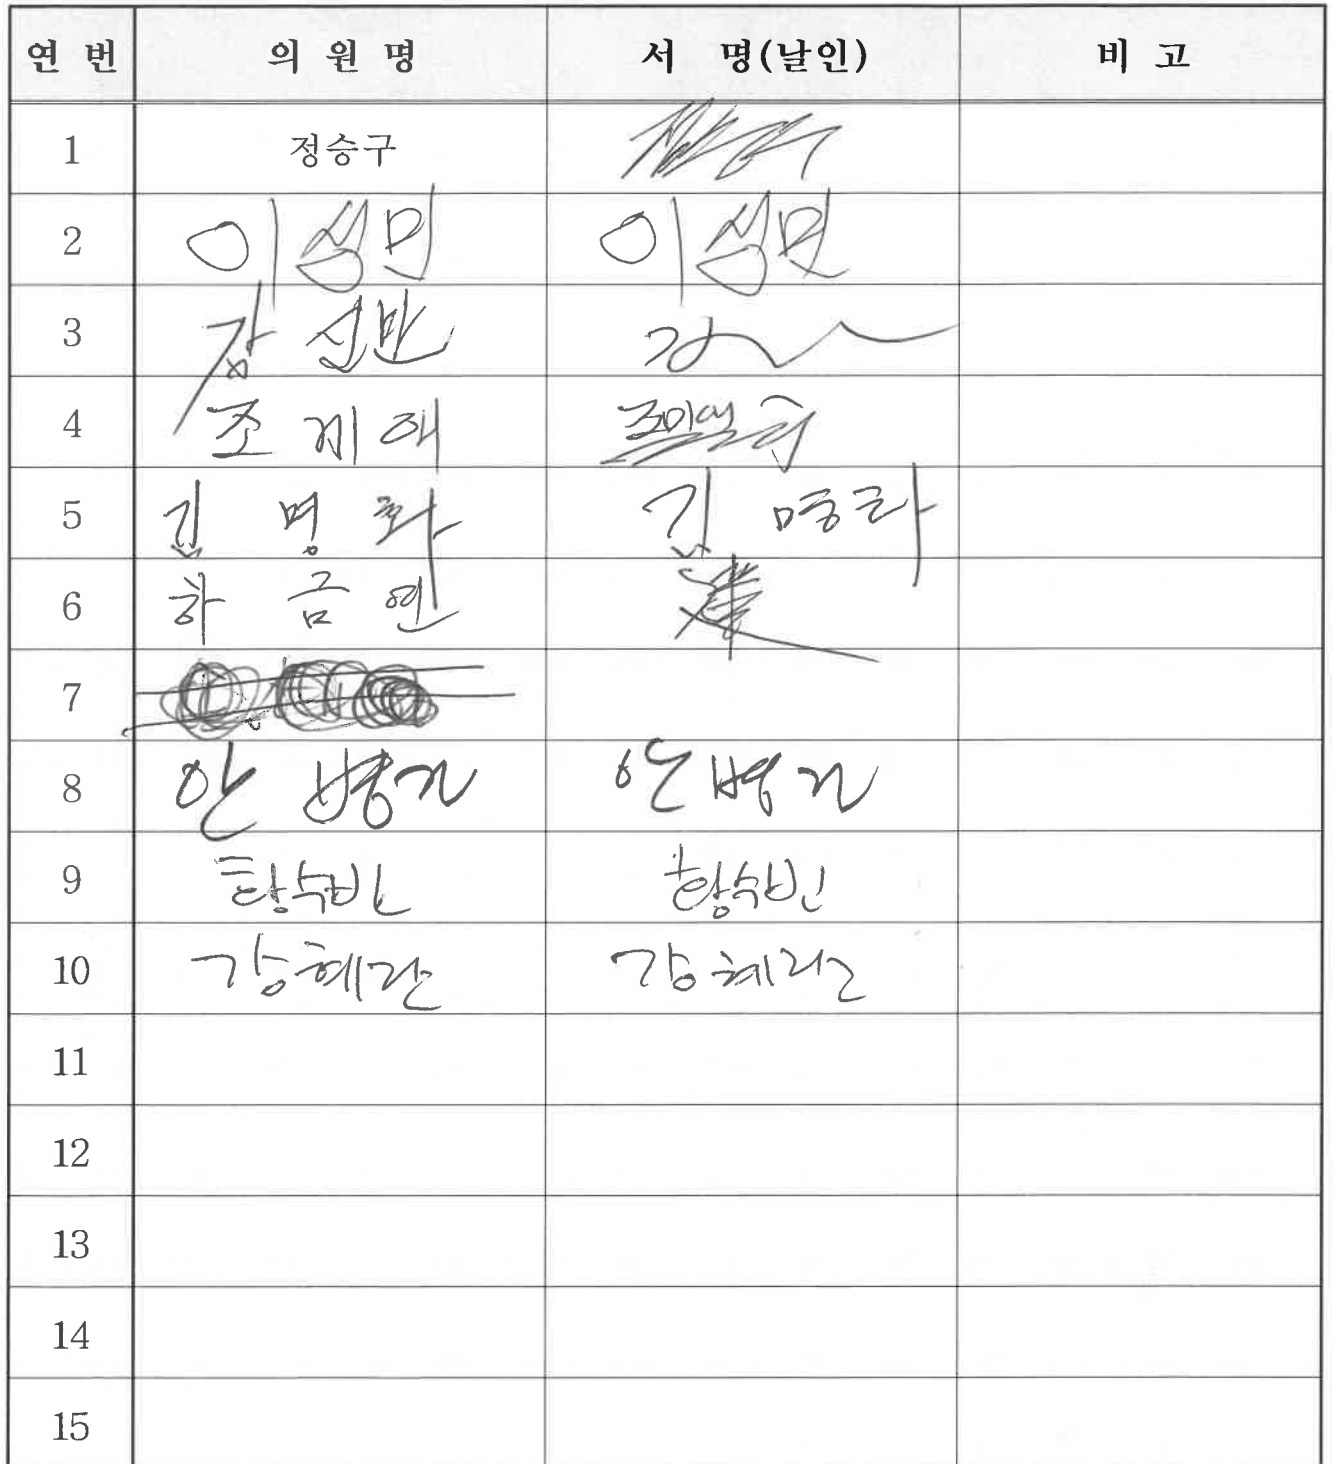 연 번 의 원 명 서 명(날인) 비 고
1 정승구
2 이성민 이성민
3
4 조계해
5 김명화 김명화
6 하금연
7
8 안병건 안병건
9 황수빈 황수빈
10 강혜란 강혜란
11
12
13
14
15